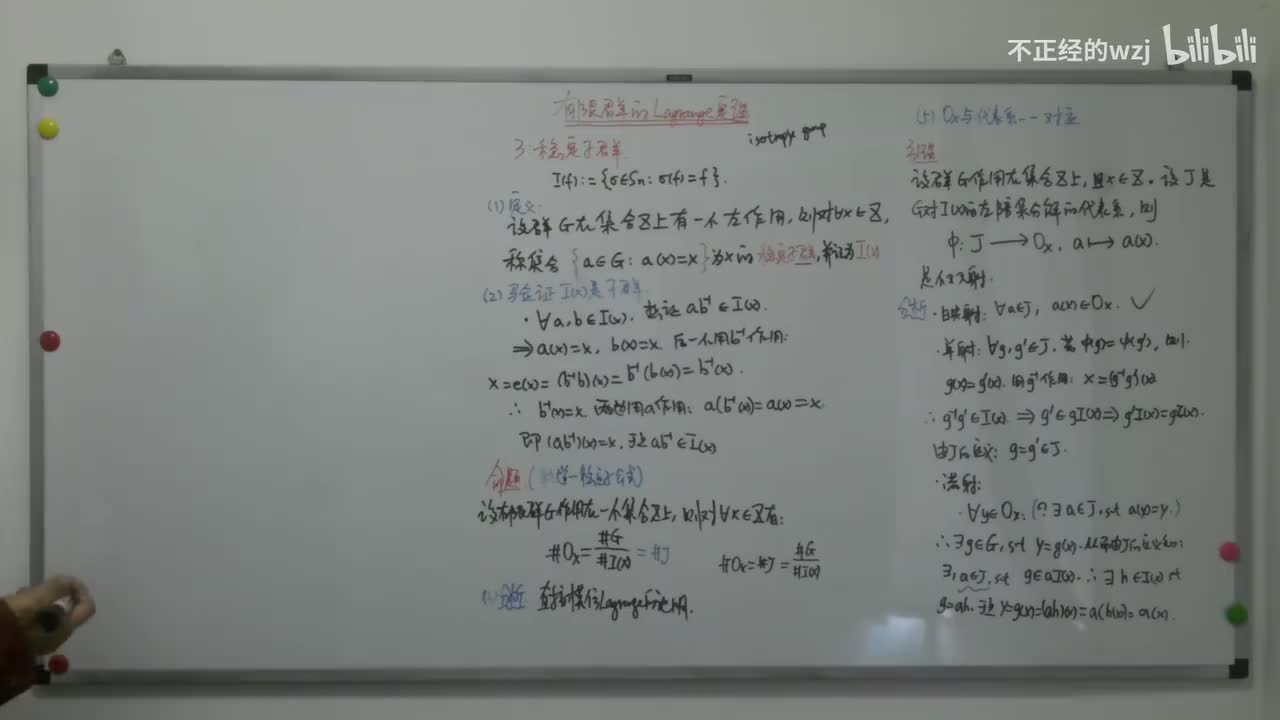 不正经的wzj bilibili
有限群的Lagrange定理
isotropy group
3. 稳定子群
I(f):={σ∈Sn: σ(f)=f}.
(1) 定义:
设群G在集合X上有一个左作用, 则对∀x∈X,
称集合{a∈G: a(x)=x}为x的稳定子群,并记为I(x)
(2) 验证I(x)是子群.
· ∀a,b∈I(x), 要证 ab⁻¹∈I(x).
⇒a(x)=x, b(x)=x. 后一个用b⁻¹作用:
x=e(x)=(b⁻¹b)(x)=b⁻¹(b(x))=b⁻¹(x).
∴ b⁻¹(x)=x. 两边用a作用: a(b⁻¹(x))=a(x)=x.
即(ab⁻¹)(x)=x, 于是ab⁻¹∈I(x)
命题 (轨道-稳定子公式)
设有限群G作用在一个集合X上, 则对∀x∈X有:
#Ox=#G/#I(x)=#J
#Ox=#J=#G/#I(x)
分析 直接模仿Lagrange
(5) Ox与代表系一一对应
引理
设群G作用在集合X上, 且x∈X. 设J是
G对I(x)的左陪集分解的代表系, 则
φ: J⟶Ox, a⟼a(x).
是一个双射.
分析 · 良映射: ∀a∈J, a(x)∈Ox. ✓
· 单射: ∀g,g'∈J, 若φ(g)=φ(g'), 则
g(x)=g'(x). 用g⁻¹作用: x=(g⁻¹g')(x)
∴ g⁻¹g'∈I(x) ⇒ g'∈gI(x) ⇒ g'I(x)=gI(x).
由J的定义: g=g'∈J.
· 满射:
· ∀y∈Ox: (? ∃a∈J, s.t a(x)=y.)
∴∃g∈G, s.t y=g(x). 从而由J的定义知:
∃, a∈J, s.t g∈aI(x). ∴∃h∈I(x) s.t
g=ah. 于是y=g(x)=(ah)(x)=a(h(x))=a(x).